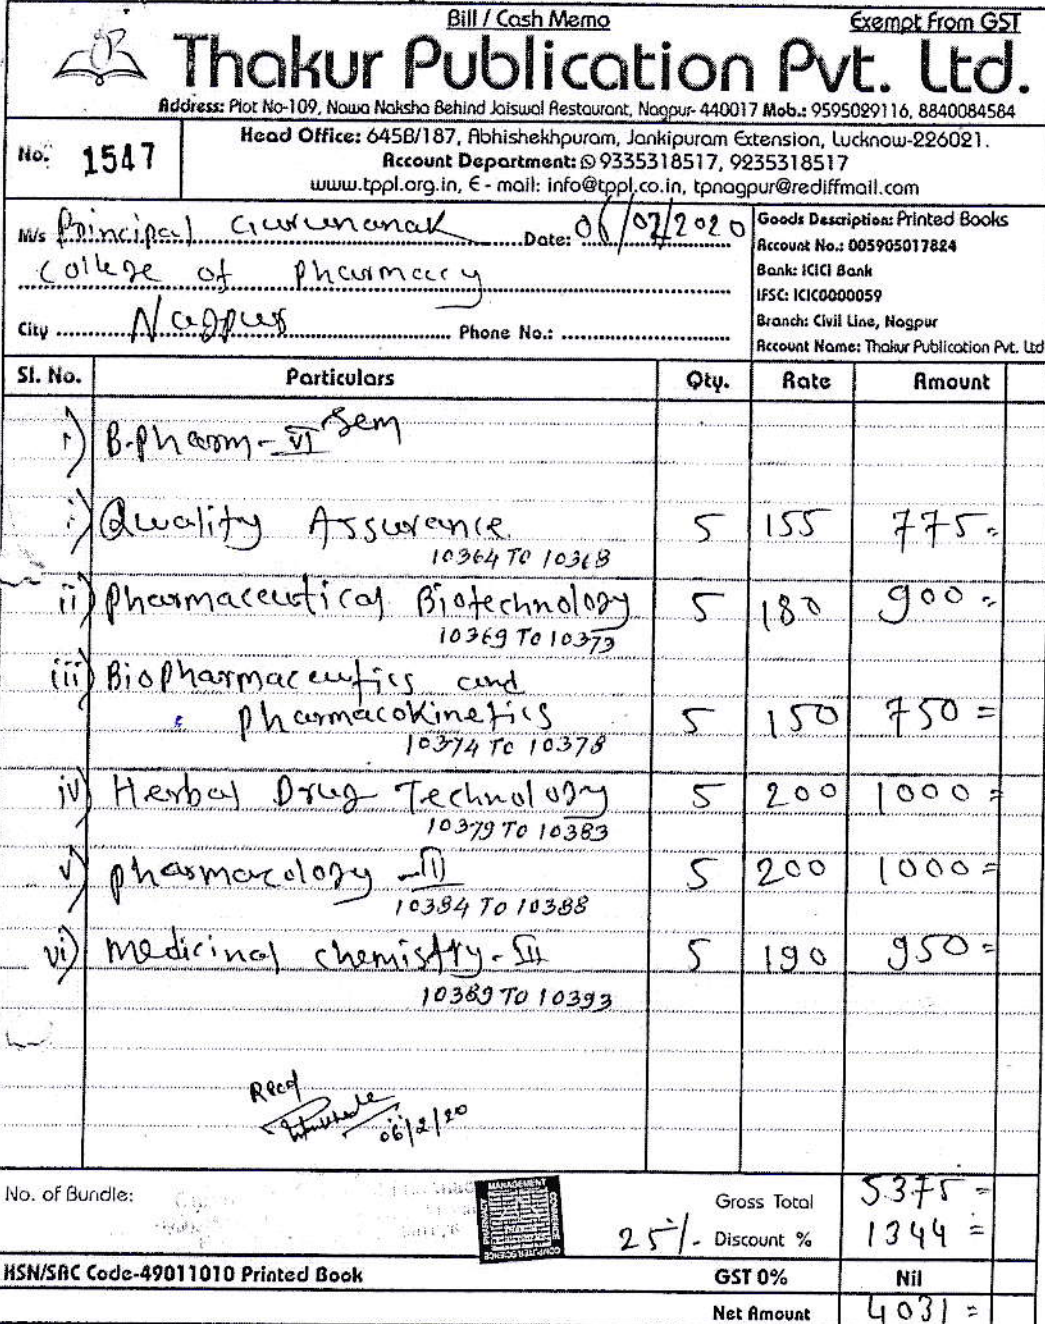 Bill / Cash Memo
Exempt from GST
Thakur Publication Pvt. Ltd.
Address: Plot No-109, Nawa Naksha Behind Jaiswal Restaurant, Nagpur- 440017 Mob.: 9595099116, 8840084584
No. 1547
Head Office: 645B/187, Abhishekhpuram, Jankipuram Extension, Lucknow-226021.
Account Department: 9335318517, 9235318517
www.tppl.org.in, E - mail: info@tppl.co.in, tpnagpur@rediffmail.com
M/s Principal Gurunanak Date: 06/02/2020
College of Pharmacy
City Nagpur Phone No.:
Goods Description: Printed Books
Account No.: 005905017824
Bank: ICICI Bank
IFSC: ICIC0000059
Branch: Civil Line, Nagpur
Account Name: Thakur Publication Pvt. Ltd
Sl. No. Particulars Qty. Rate Amount
B.pharm - VI Sem
i) Quality Assurance 5 155 775=
10364 TO 10368
ii) Pharmaceutical Biotechnology 5 180 900=
10369 TO 10373
iii) BioPharmaceutics and
Pharmacokinetics 5 150 750=
10374 TO 10378
iv) Herbal Drug Technology 5 200 1000=
10379 TO 10383
v) Pharmacology - III 5 200 1000=
10384 TO 10388
vi) medicinal chemistry - III 5 190 950=
10389 TO 10393
Recd
06/2/20
No. of Bundle:
Gross Total 5375=
25%. Discount % 1344=
HSN/SAC Code-49011010 Printed Book GST 0% Nil
Net Amount 4031=